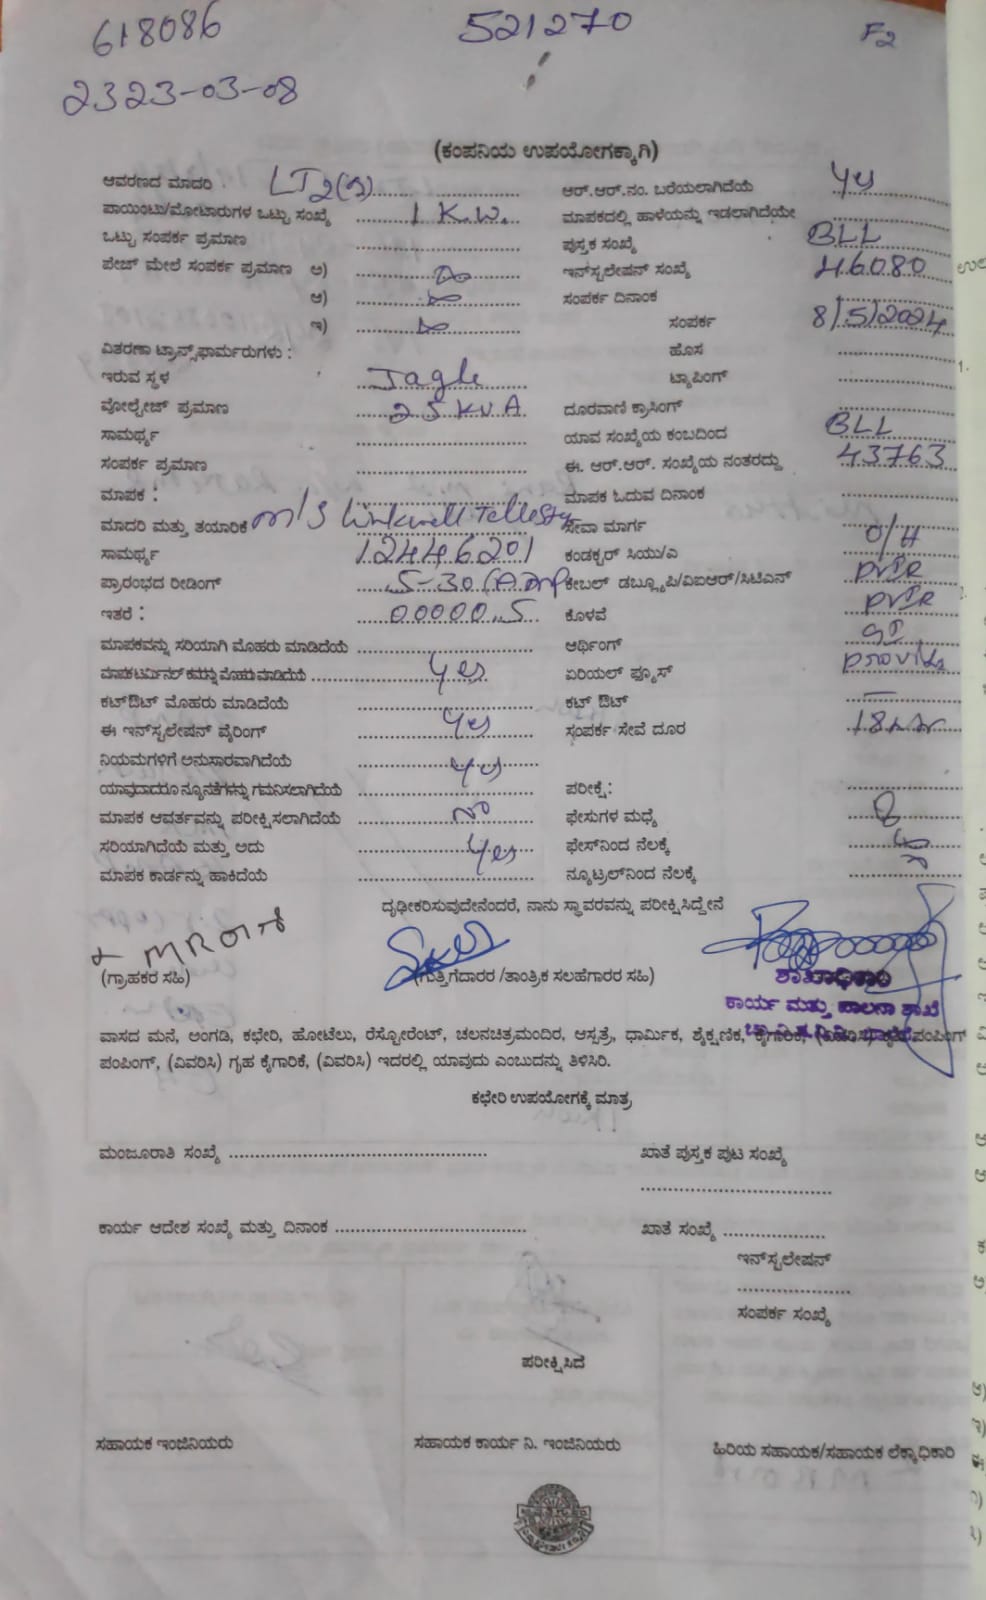 618086 521270 F2
2323-03-08
(ಕಂಪನಿಯ ಉಪಯೋಗಕ್ಕಾಗಿ)
ಆವರಣದ ಮಾದರಿ : LT2(a) ಆರ್.ಆರ್.ನಂ. ಬರೆಯಲಾಗಿದೆಯೆ Yes
ಪಾಯಿಂಟು/ಮೋಟಾರುಗಳ ಒಟ್ಟು ಸಂಖ್ಯೆ 1 K.W. ಮಾಪಕದಲ್ಲಿ ಹಾಳೆಯನ್ನು ಇಡಲಾಗಿದೆಯೇ
ಒಟ್ಟು ಸಂಪರ್ಕ ಪ್ರಮಾಣ ಪುಸ್ತಕ ಸಂಖ್ಯೆ BLL
ಪೇಜ್ ಮೇಲೆ ಸಂಪರ್ಕ ಪ್ರಮಾಣ ಅ) ಇನ್‌ಸ್ಟಲೇಷನ್ ಸಂಖ್ಯೆ 46080
ಆ) ಸಂಪರ್ಕ ದಿನಾಂಕ
ಇ) ಸಂಪರ್ಕ 8/5/2024
ವಿತರಣಾ ಟ್ರಾನ್ಸ್‌ಫಾರ್ಮರುಗಳು : ಹೊಸ
ಇರುವ ಸ್ಥಳ Jagle ಟ್ಯಾಪಿಂಗ್
ವೋಲ್ಟೇಜ್ ಪ್ರಮಾಣ 25 KVA ದೂರವಾಣಿ ಕ್ರಾಸಿಂಗ್
ಸಾಮರ್ಥ್ಯ ಯಾವ ಸಂಖ್ಯೆಯ ಕಂಬದಿಂದ BLL
ಸಂಪರ್ಕ ಪ್ರಮಾಣ ಈ. ಆರ್.ಆರ್. ಸಂಖ್ಯೆಯ ನಂತರದ್ದು 43763
ಮಾಪಕ : ಮಾಪಕ ಓದುವ ದಿನಾಂಕ
ಮಾದರಿ ಮತ್ತು ತಯಾರಿಕೆ M/S Linkwell ಸೇವಾ ಮಾರ್ಗ O/H
ಸಾಮರ್ಥ್ಯ 12446201 ಕಂಡಕ್ಟರ್ ಸಿಯು/ಎ
ಪ್ರಾರಂಭದ ರೀಡಿಂಗ್ 5-30 (Amp ಕೇಬಲ್ ಡಬ್ಲ್ಯೂಪಿ/ವಿಐಆರ್/ಸಿಟಿಎಸ್
ಇತರೆ : 00000.5 ಕೊಳವೆ
ಮಾಪಕವನ್ನು ಸರಿಯಾಗಿ ಮೊಹರು ಮಾಡಿದೆಯೆ ಆರ್ಥಿಂಗ್ GI
ಮಾಪಕ ಟರ್ಮಿನಲ್ ಕವರನ್ನು ಮೊಹರು ಮಾಡಿದೆಯೆ Yes ಏರಿಯಲ್ ಫ್ಯೂಸ್
ಕಟ್‌ಔಟ್ ಮೊಹರು ಮಾಡಿದೆಯೆ ಕಟ್ ಔಟ್ —
ಈ ಇನ್‌ಸ್ಟಲೇಷನ್ ವೈರಿಂಗ್ Yes ಸಂಪರ್ಕ ಸೇವೆ ದೂರ
ನಿಯಮಗಳಿಗೆ ಅನುಸಾರವಾಗಿದೆಯೆ Yes
ಯಾವುದಾದರೂ ನ್ಯೂನತೆಗಳನ್ನು ಗಮನಿಸಲಾಗಿದೆಯೆ ಪರೀಕ್ಷೆ:
ಮಾಪಕ ಆವರ್ತವನ್ನು ಪರೀಕ್ಷಿಸಲಾಗಿದೆಯೆ No ಫೇಸುಗಳ ಮಧ್ಯೆ
ಸರಿಯಾಗಿದೆಯೆ ಮತ್ತು ಅದು Yes ಫೇಸ್‌ನಿಂದ ನೆಲಕ್ಕೆ
ಮಾಪಕ ಕಾರ್ಡನ್ನು ಹಾಕಿದೆಯೆ ನ್ಯೂಟ್ರಲ್‌ನಿಂದ ನೆಲಕ್ಕೆ
ದೃಢೀಕರಿಸುವುದೇನೆಂದರೆ, ನಾನು ಸ್ಥಾವರವನ್ನು ಪರೀಕ್ಷಿಸಿದ್ದೇನೆ
(ಗ್ರಾಹಕರ ಸಹಿ) (ಗುತ್ತಿಗೆದಾರರ /ತಾಂತ್ರಿಕ ಸಲಹೆಗಾರರ ಸಹಿ) ಶಾಖಾಧಿಕಾರಿ
ಕಾರ್ಯ ಮತ್ತು ಪಾಲನಾ ಶಾಖೆ
ವಾಸದ ಮನೆ, ಅಂಗಡಿ, ಕಛೇರಿ, ಹೋಟೆಲು, ರೆಸ್ಟೋರೆಂಟ್, ಚಲನಚಿತ್ರಮಂದಿರ, ಆಸ್ಪತ್ರೆ, ಧಾರ್ಮಿಕ, ಶೈಕ್ಷಣಿಕ, ಕೈಗಾರಿಕೆ, (ವಿವರಿಸಿ) ಪಂಪಿಂಗ್
ಪಂಪಿಂಗ್, (ವಿವರಿಸಿ) ಗೃಹ ಕೈಗಾರಿಕೆ, (ವಿವರಿಸಿ) ಇದರಲ್ಲಿ ಯಾವುದು ಎಂಬುದನ್ನು ತಿಳಿಸಿರಿ.
ಕಛೇರಿ ಉಪಯೋಗಕ್ಕೆ ಮಾತ್ರ
ಮಂಜೂರಾತಿ ಸಂಖ್ಯೆ ಖಾತೆ ಪುಸ್ತಕ ಪುಟ ಸಂಖ್ಯೆ
ಕಾರ್ಯ ಆದೇಶ ಸಂಖ್ಯೆ ಮತ್ತು ದಿನಾಂಕ ಖಾತೆ ಸಂಖ್ಯೆ
ಇನ್‌ಸ್ಟಲೇಷನ್
ಸಂಪರ್ಕ ಸಂಖ್ಯೆ
ಪರೀಕ್ಷಿಸಿದೆ
ಸಹಾಯಕ ಇಂಜಿನಿಯರು ಸಹಾಯಕ ಕಾರ್ಯ ನಿ. ಇಂಜಿನಿಯರು ಹಿರಿಯ ಸಹಾಯಕ/ಸಹಾಯಕ ಲೆಕ್ಕಾಧಿಕಾರಿ